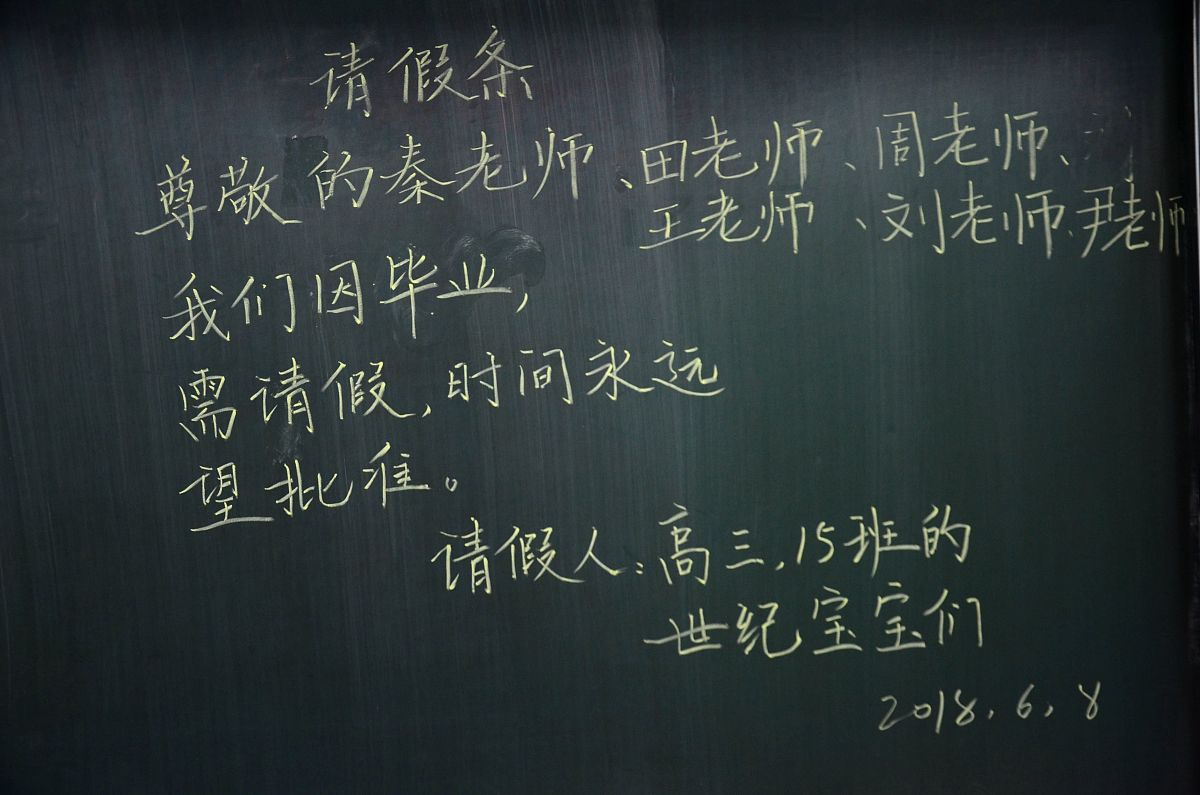 请假条
尊敬的秦老师、田老师、周老师、
王老师、刘老师、尹老师
我们因毕业,
需请假,时间永远
望批准。
请假人:高三.15班的
世纪宝宝们
2018.6.8